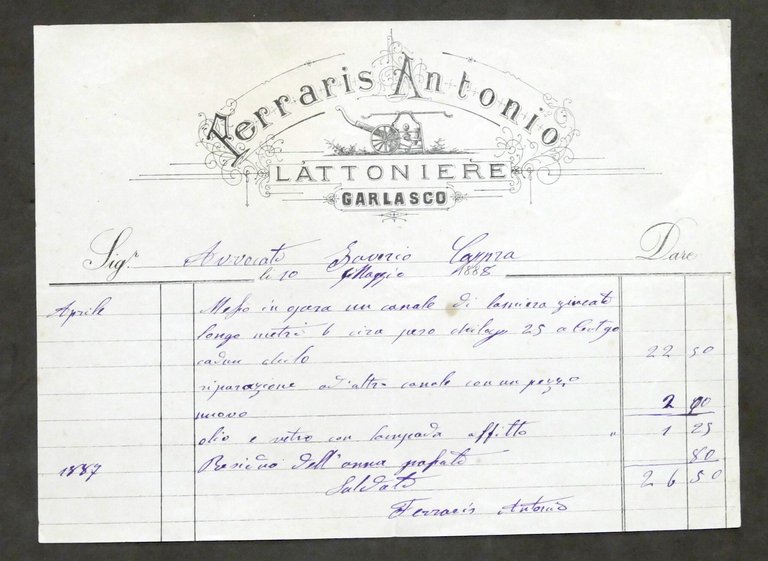 Ferraris Antonio
LATTONIERE
GARLASCO
Sig.r Avvocato Saverio Dare
li 10 Maggio 1888
Aprile Messo in opera un canale di lamiera zincato
longo metri 6 cira peso chilog 25 a Cent 90
cadun chilo 22 50
riparazione ad'altro canale con un pezzo
nuovo 2 00
olio e vetro con lampada affitto " 1 25
1887 Residuo dell'anno passato 80
Saldato 26 50
Ferraris Antonio